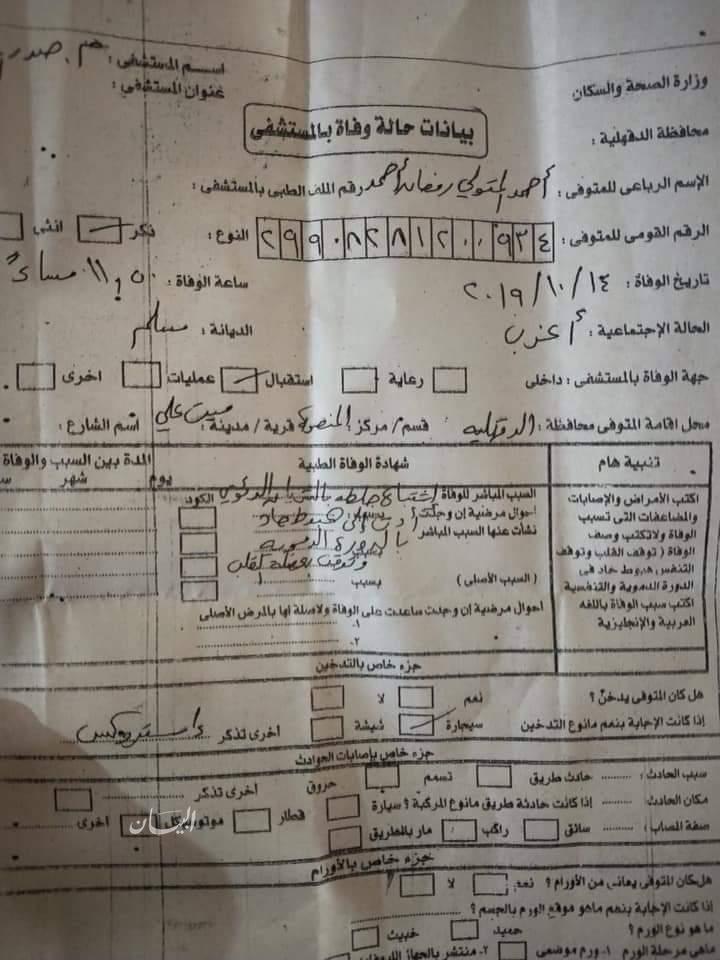 اسم المستشفى : م. صدر
وزارة الصحة والسكان
عنوان المستشفى :
محافظة الدقهلية :
بيانات حالة وفاة بالمستشفى
الإسم الرباعى للمتوفى : أحمد المتولي رمضان أحمد رقم الملف الطبى بالمستشفى :
الرقم القومى للمتوفى : ٢٩٩٠٨٢٨١٢٠٠٩٣٤ النوع : ذكر انثى
تاريخ الوفاة : ٢٠١٩/١٠/١٤ ساعة الوفاة : ١١,٥٠ مساءً
الحالة الإجتماعية : أعزب الديانة : مسلم
جهة الوفاة بالمستشفى : داخلى رعاية استقبال عمليات اخرى
محل اقامة المتوفى محافظة : الدقهليه قسم / مركز المنصورة قرية / مدينة : ميت علي اسم الشارع :
تنبية هام
شهادة الوفاة الطبية
المدة بين السبب والوفاة
يوم شهر
اكتب الأمراض والإصابات
والمضاعفات التى تسبب
الوفاة ولاتكتب وصف
الوفاة ( توقف القلب وتوقف
التنفس هبوط حاد فى
الدورة الدموية والتنفسية
اكتب سبب الوفاة باللغه
العربية والإنجليزية
السبب المباشر للوفاة إشتباه جلطه بالشريان الرئوي الكود
احوال مرضية إن وجدت أدت إلى هبوط حاد
نشأت عنها السبب المباشر بالدورة الدموية
وتوقف بعضلة القلب
( السبب الأصلى ) بسبب
احوال مرضية إن وجدت ساعدت على الوفاة ولاصلة لها بالمرض الأصلى
١.
٢.
جزء خاص بالتدخين
هل كان المتوفى يدخن ؟ نعم لا
إذا كانت الإجابة بنعم مانوع التدخين سيجارة شيشة أخرى تذكر استروكس
جزء خاص بإصابات الحوادث
سبب الحادث : حادث طريق تسمم حروق اخرى تذكر
مكان الحادث : إذا كانت حادثة طريق مانوع المركبة ؟ سيارة قطار موتوسيكل اخرى
صفة المصاب : سائق راكب مار بالطريق
البيان
جزء خاص بالأورام
هل كان المتوفى يعانى من الأورام ؟ نعم لا
إذا كانت الإجابة بنعم ماهو موقع الورم بالجسم ؟
ما هو نوع الورم ؟ حميد خبيث
ماهى مرحلة الورم ١. ورم موضعى ٢. منتشر بالجهاز